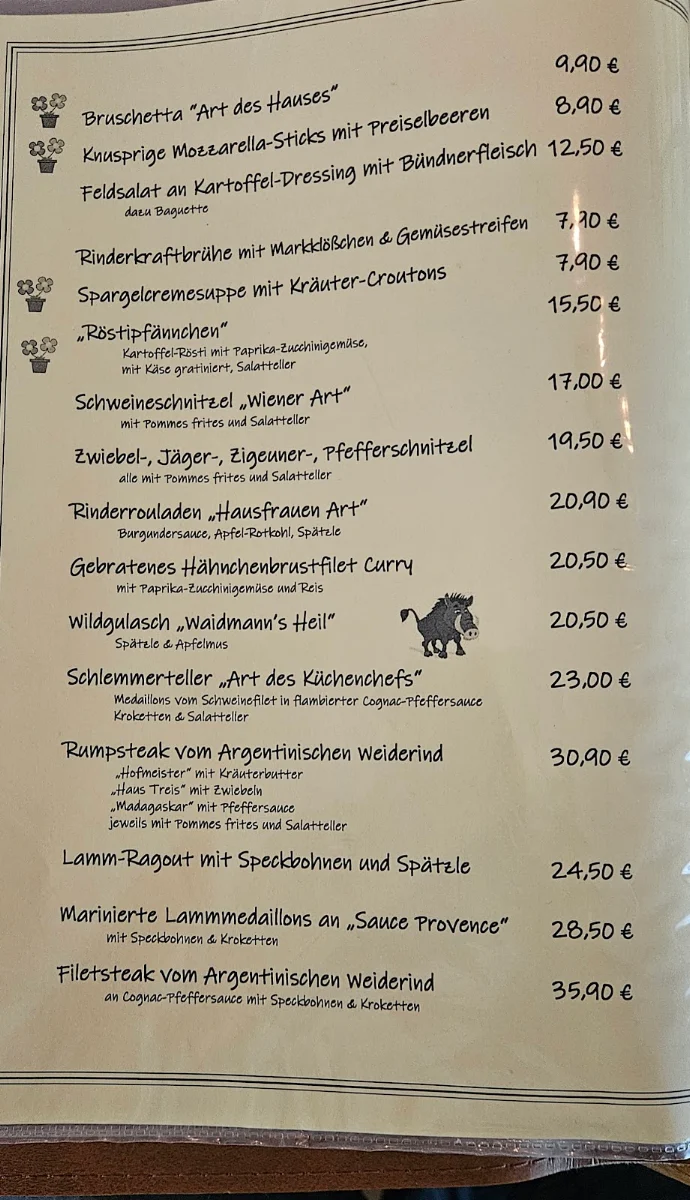 Bruschetta "Art des Hauses" 9,90 €
Knusprige Mozzarella-Sticks mit Preiselbeeren 8,90 €
Feldsalat an Kartoffel-Dressing mit Bündnerfleisch 12,50 €
dazu Baguette
Rinderkraftbrühe mit Markklößchen & Gemüsestreifen 7,90 €
Spargelcremesuppe mit Kräuter-Croutons 7,90 €
„Röstipfännchen“ 15,50 €
Kartoffel-Rösti mit Paprika-Zucchinigemüse,
mit Käse gratiniert, Salatteller
Schweineschnitzel „Wiener Art“ 17,00 €
mit Pommes frites und Salatteller
Zwiebel-, Jäger-, Zigeuner-, Pfefferschnitzel 19,50 €
alle mit Pommes frites und Salatteller
Rinderrouladen „Hausfrauen Art“ 20,90 €
Burgundersauce, Apfel-Rotkohl, Spätzle
Gebratenes Hähnchenbrustfilet Curry 20,50 €
mit Paprika-Zucchinigemüse und Reis
Wildgulasch „Waidmann's Heil“ 20,50 €
Spätzle & Apfelmus
Schlemmerteller „Art des Küchenchefs“ 23,00 €
Medaillons vom Schweinefilet in flambierter Cognac-Pfeffersauce
Kroketten & Salatteller
Rumpsteak vom Argentinischen Weiderind 30,90 €
„Hofmeister“ mit Kräuterbutter
„Haus Treis“ mit Zwiebeln
„Madagaskar“ mit Pfeffersauce
jeweils mit Pommes frites und Salatteller
Lamm-Ragout mit Speckbohnen und Spätzle 24,50 €
Marinierte Lammmedaillons an „Sauce Provence“ 28,50 €
mit Speckbohnen & Kroketten
Filetsteak vom Argentinischen Weiderind 35,90 €
an Cognac-Pfeffersauce mit Speckbohnen & Kroketten